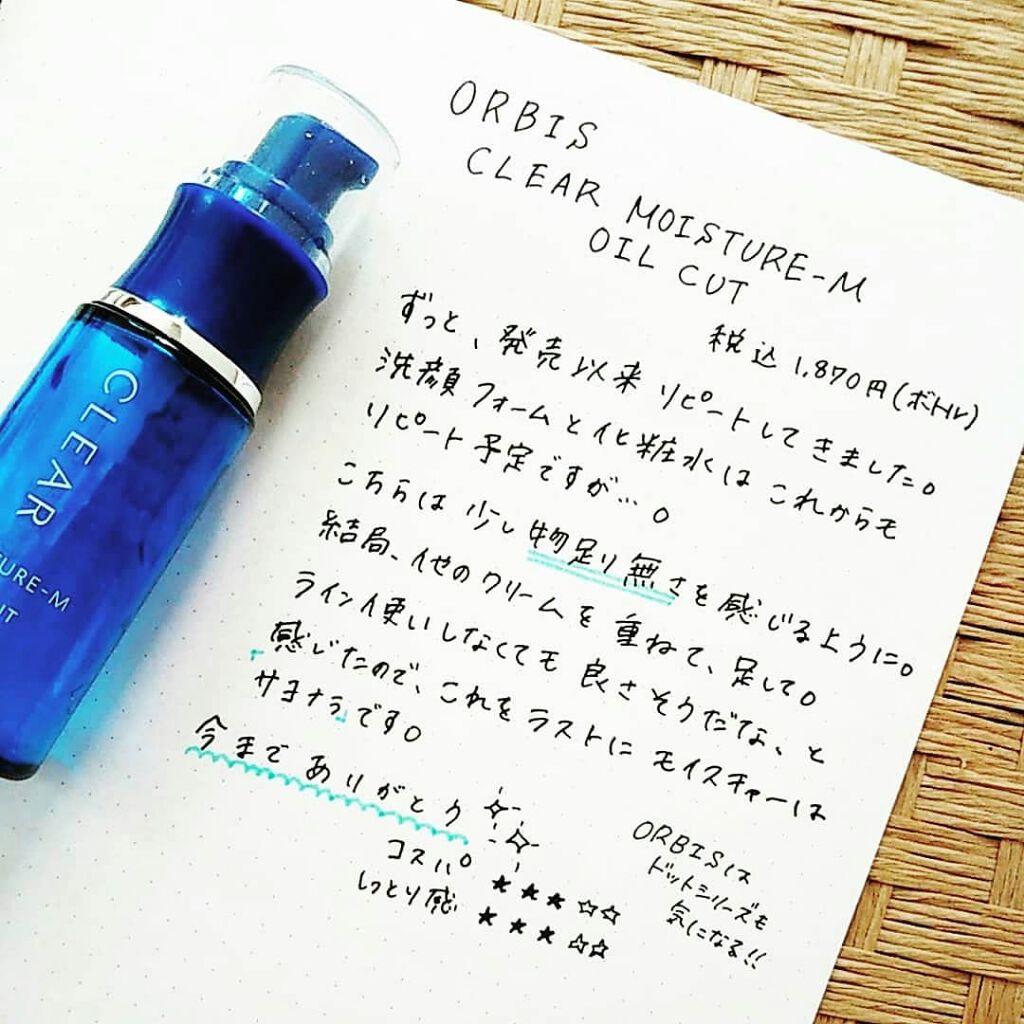 CLEAR
TURE-M
UT
ORBIS
CLEAR MOISTURE-M
OIL CUT
税込1,870円(ボトル)
ずっと、発売以来リピートしてきました。
洗顔フォームと化粧水はこれからも
リピート予定ですが…。
こちらは少し物足り無さを感じるように。
結局、他のクリームを重ねて、足して。
ライン使いしなくても良さそうだな、と
感じたので、これをラストにモイスチャーは
「サヨナラ」です。
今までありがとう
コスパ ★★★☆☆
しっとり感 ★★★☆☆
ORBISは
ドットシリーズも
気になる!!